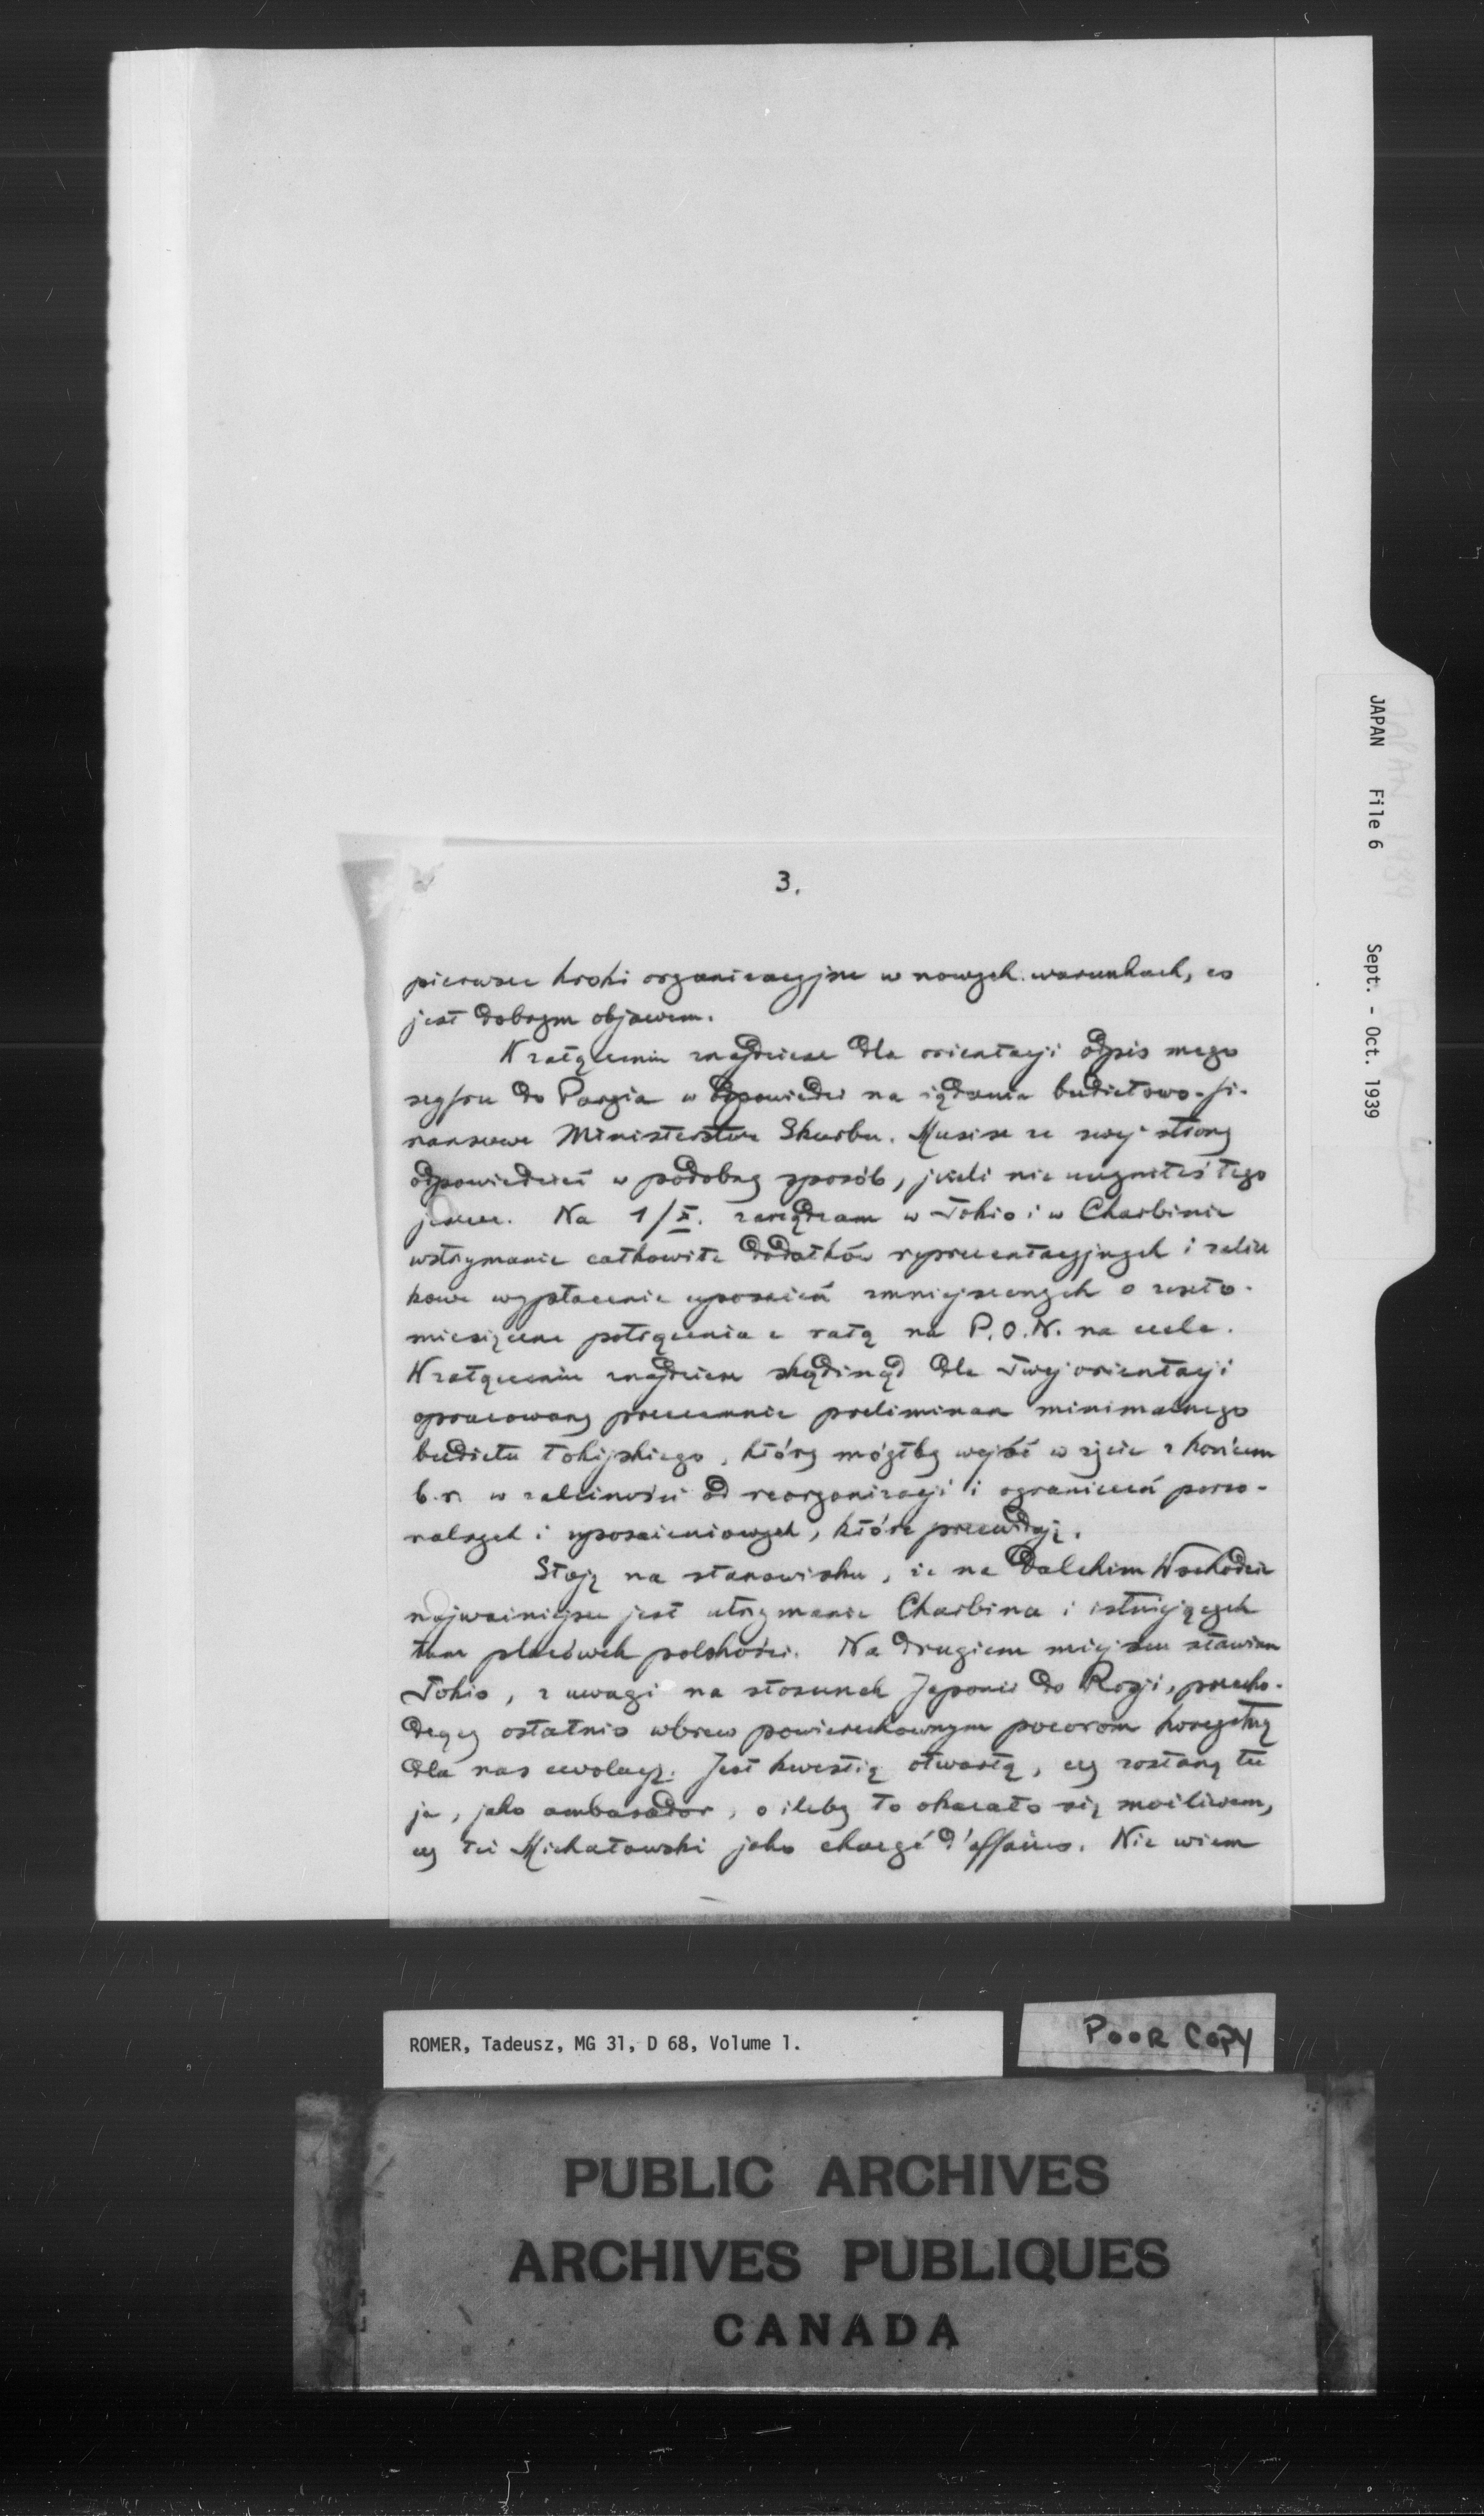 3.
pierwsze kroki organizacyjne w nowych warunkach, co
jest dobrym objawem.
W załączeniu znajdziesz dla orientacji odpis mego
szyfru do Paryża w odpowiedzi na żądania budżetowo-fi-
nansowe Ministerstwa Skarbu. Musisz ze swej strony
odpowiedzieć w podobny sposób, jeżeli nie uczyniłeś tego
jeszcze. Na 1/X. zarządzam w Tokio i w Charbinie
wstrzymanie całkowite dodatków reprezentacyjnych i zalicz
kowe wypłacenie uposażeń zmniejszonych o zeszło-
miesięczne potrącenia z ratą na P.O.N. na czele.
W załączeniu znajdziesz skądinąd dla Twej orientacji
opracowany przezemnie preliminarz minimalnego
budżetu tokijskiego, który mógłby wejść w życie z końcem
b.r. w zależności od reorganizacji i ograniczeń perso-
nalnych i uposażeniowych, które przewiduję.
Stoję na stanowisku, że na Dalekim Wschodzie
najważniejsze jest utrzymanie Charbina i istniejących
tam placówek polskości. Na drugiem miejscu stawiam
Tokio, z uwagi na stosunek Japonii do Rosji, przecho-
dzący ostatnio wbrew powierzchownym pozorom korzystną
dla nas ewolucję. Jest kwestią otwartą, czy zostanę tu
ja, jako ambasador, o ileby to okazało się możliwem,
czy też Michałowski jako chargé d'affaires. Nie wiem
JAPAN File 6 Sept. - Oct. 1939
ROMER, Tadeusz, MG 31, D 68, Volume 1.
POOR COPY
PUBLIC ARCHIVES
ARCHIVES PUBLIQUES
CANADA